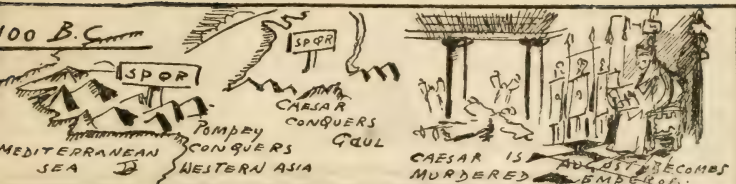 100 B.C.
SPQR
MEDITERRANEAN
SEA
POMPEY
CONQUERS
WESTERN ASIA
SPQR
CAESAR
CONQUERS
GAUL
CAESAR IS
MURDERED
BECOMES
EMPEROR.